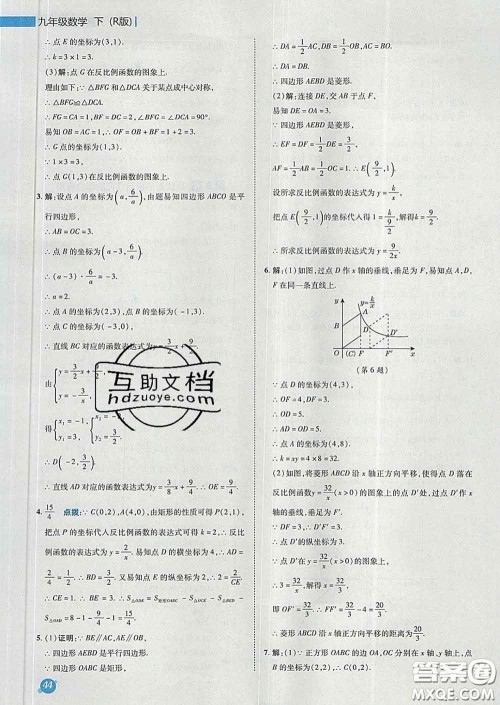 九年级数学 下 (R版)
∴点 E 的坐标为(3,1).
∴k=3×1=3.
(3)解:点 G 在反比例函数的图象上.
理由如下:∵△BFG 和△DCA 关于某点成中心对称,
∴△BFG≌△DCA.
∴FG=CA=1,BF=DC=2,∠GFB=∠ACD=90°.
易知 OB=AC=1,
∴OF=OB+BF=1+2=3.
∴G 点的坐标为(1,3).
∵1×3=3,
∴点 G(1,3)在反比例函数的图象上.
3. 解:设点 A 的坐标为(a,6/a),由题易知四边形 ABCO 是平
行四边形,
∴AB=OC=3.
∴点 B 的坐标为(a-3,6/a).
∴(a-3)·6/a=-3.
∴a=2.
∴点 A 的坐标为(2,3).
∵点 C 的坐标为(-3,0),
∴直线 BC 对应的函数表达式为
由
得
∴D(-2,-3/2).
∴直线 AD 对应的函数表达式为 y=
4. 15/4 点拨:∵C(0,2),A(4,0),由矩形的性质可得 P(2,1),
把点 P 的坐标代入反比例函数表达式可得 k=2,∴反比
例函数的表达式为 y=2/x.易知点 D 的横坐标为 4,∴AD=
2/4=1/2.∴BD=3/2.又易知点 E 的纵坐标为 2,∴2=2/CE.
∴CE=1.∴BE=3.∴S△ODE=S矩形OABC-S△OCE-S△OAD
-S△BDE=8-1-1-9/4=15/4.
5. (1)证明:∵BE∥AC,AE∥OB,
∴四边形 AEBD 是平行四边形.
∵四边形 OABC 是矩形,
44
∴DA=1/2AC,DB=1/2OB,AC=OB.
∴DA=DB.
∴四边形 AEBD 是菱形.
(2)解:连接 DE,交 AB 于点 F,
易知 DE=OA=3.
∵四边形 AEBD 是菱形,
∴EF=DF=1/2DE=3/2,
AF=1/2AB=1/2OC=1.∴E(9/2,1).
设所求反比例函数的表达式为 y=k/x,
把点 E(9/2,1)的坐标代入得 1=k/(9/2),解得 k=9/2.
∴所求反比例函数的表达式为 y=9/2x.
6. 解:(1)如图,过点 D 作 x 轴的垂线,垂足为 F,易知点 A,D,
F 在同一条直线上.
y
y=k/x
A
B
D
D′
O
(C)
F
F′
x
(第 6 题)
∵点 D 的坐标为(4,3),
∴OF=4,DF=3.
∴OD=5.
∴AD=5.
∴点 A 的坐标为(4,8).
∴k=xy=4×8=32.
(2)如图,将菱形 ABCD 沿 x 轴正方向平移,使得点 D 落在
函数 y=32/x(x>0)的图象上的点 D′处,
过点 D′作 x 轴的垂线,垂足为 F′.
∵DF=3,∴D′F′=3.
∴点 D′的纵坐标为 3.
∵点 D′在 y=32/x(x>0)的图象上,
∴3=32/x,解得 x=32/3,
即 OF′=32/3,∴FF′=32/3-4=20/3,
∴菱形 ABCD 沿 x 轴正方向平移的距离为 20/3.
7. 解:(1)∵正方形 OABC 的边 OC,OA 分别在 x 轴、y 轴上,点
B 的坐标为(2,2),∴C(0,2).
互助文档
hdzuoye.com
答案圈
MXQE.COM